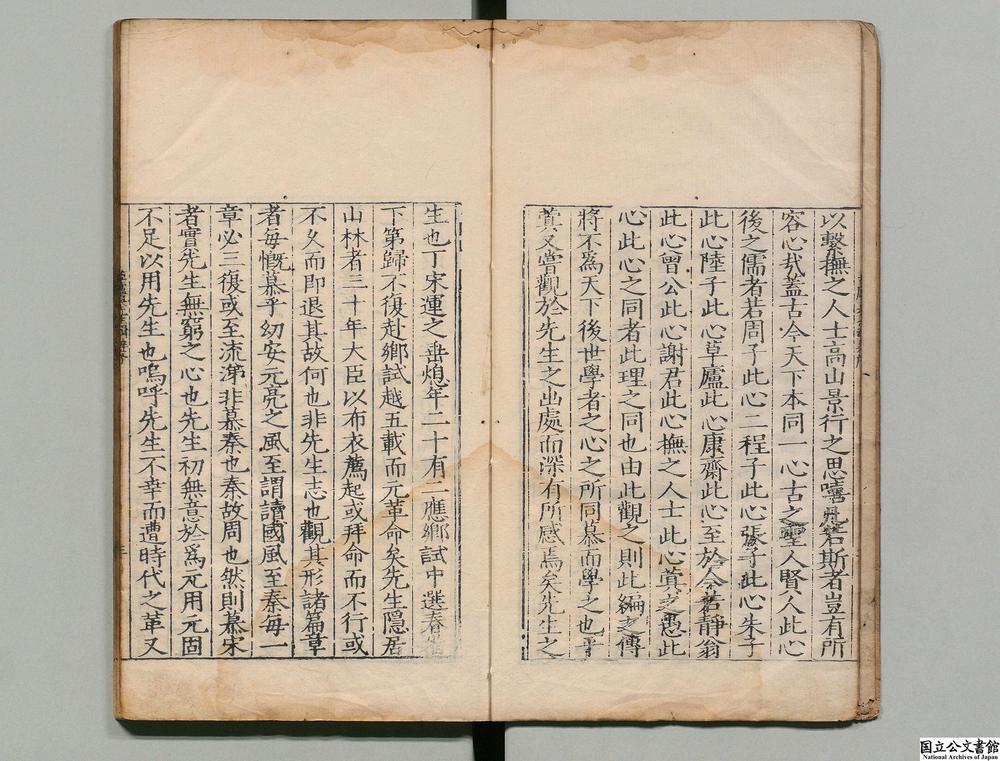 以繫撫之人士高山景行之思嘻若斯者豈有所
容心㦲蓋古今天下本同一心古之聖人賢人此心
後之儒者若周子此心二程子此心張子此心朱子
此心陸子此心草廬此心康齋此心至於今若靜翁
此心曾公此心謝君此心撫之人士此心蓂之愚此
心此心之同者此理之同也由此觀之則此編之傳
將不爲天下後世學者之心之所同慕而學之也乎
蓂又嘗觀於先生之出處而深有所感焉矣先生之
生也丁宋運之垂熄年二十有二應鄉試中選春
下第歸不復赴鄉試越五載而元革命矣先生隱居
山林者三十年大臣以布衣薦起或拜命而不行或
不久而即退其故何也非先生志也觀其形諸篇章
者每慨慕乎幼安元亮之風至謂讀國風至秦每一
章必三復或至流涕非慕秦也秦故周也然則慕宋
者實先生無窮之心也先生初無意於爲元用元固
不足以用先生也嗚呼先生不幸而遭時代之革又
国立公文書館
National Archives of Japan